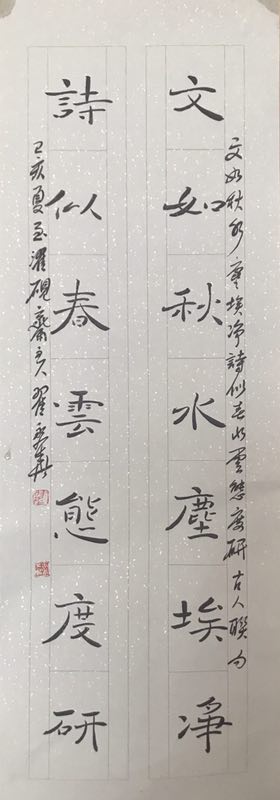 文如秋水塵埃净詩似春雲態度研古人聯句
文如秋水塵埃凈
詩似春雲態度研
己亥夏至濯硯齋主人翟